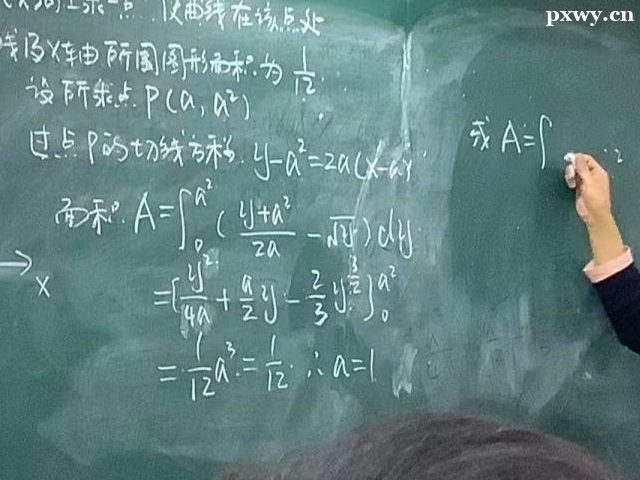 pxwy.cn
求一点 使曲线在该点处
线及X轴由所围图形面积为 1/12.
设所求点 P(a, a²)
过点P的切线方程. y-a²=2a(x-a)
面积. A=∫₀^{a²} ( (y+a²)/2a - √y ) dy.
=[y²/4a + a/2 y - 2/3 y^{3/2}]₀^{a²}
= 1/12 a³ = 1/12. ∴ a=1
x
或 A=∫